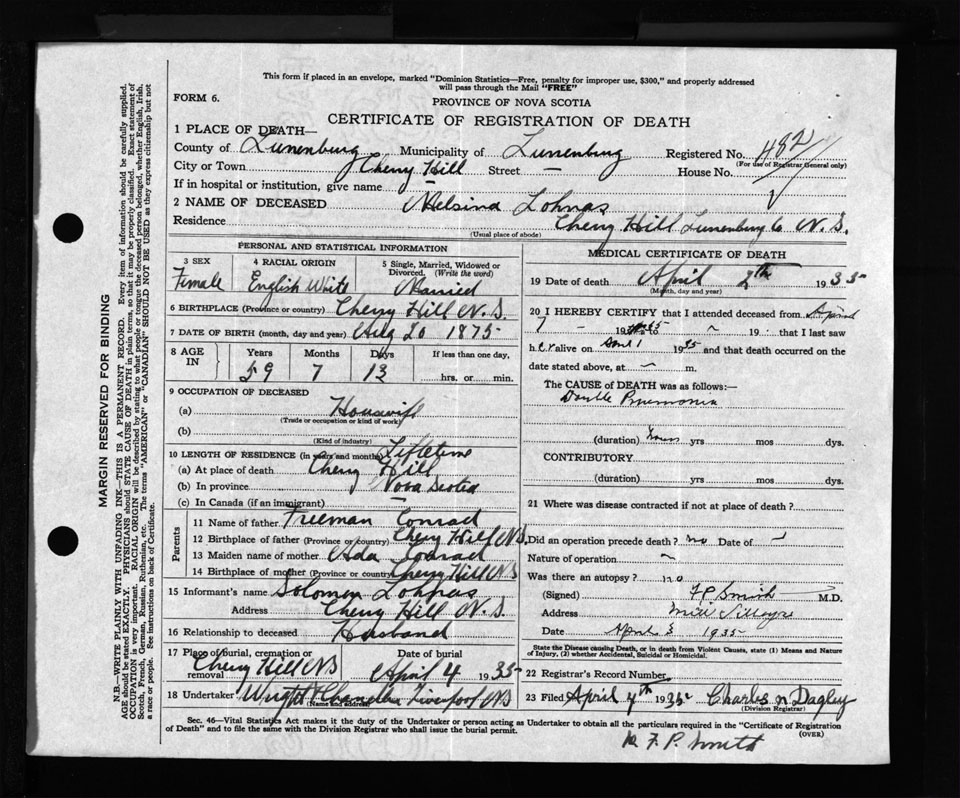 This form if placed in an envelope, marked "Dominion Statistics—Free, penalty for improper use, $300," and properly addressed
will pass through the Mail "FREE"
FORM 6.
PROVINCE OF NOVA SCOTIA
CERTIFICATE OF REGISTRATION OF DEATH
1 PLACE OF DEATH—
County of Lunenburg Municipality of Lunenburg Registered No. 482
(For use of Registrar General only)
City or Town Cherry Hill Street — House No.
If in hospital or institution, give name —
2 NAME OF DECEASED Melsina Lohnas
Residence Cherry Hill Lunenburg Co N. S.
(Usual place of abode)
PERSONAL AND STATISTICAL INFORMATION
3 SEX 4 RACIAL ORIGIN 5 Single, Married, Widowed or
Divorced. (Write the word)
Female English White Married
6 BIRTHPLACE (Province or country) Cherry Hill N. S.
7 DATE OF BIRTH (month, day and year) Aug 20 1875
8 AGE IN Years Months Days If less than one day,
59 7 13 hrs. or min.
9 OCCUPATION OF DECEASED
(a) Housewife
(Trade or occupation or kind of work)
(b)
(Kind of industry)
10 LENGTH OF RESIDENCE (in years and months) Lifetime
(a) At place of death Cherry Hill
(b) In province Nova Scotia
(c) In Canada (if an immigrant) —
Parents
11 Name of father Freeman Conrad
12 Birthplace of father (Province or country) Cherry Hill NS.
13 Maiden name of mother Ada Conrad
14 Birthplace of mother (Province or country) Cherry Hill NS
15 Informant's name Solomen Lohnas
Address Cherry Hill N. S.
16 Relationship to deceased Husband
17 Place of burial, cremation or
removal Cherry Hill NS Date of burial
April 4 1935
18 Undertaker Wright & Chandler Liverpool NS
(Name and address)
MEDICAL CERTIFICATE OF DEATH
19 Date of death April 2th 1935
(Month, day and year)
20 I HEREBY CERTIFY that I attended deceased from April
19 to 19 that I last saw
her alive on April 1 1935 and that death occurred on the
date stated above, at — m.
The CAUSE of DEATH was as follows:
Double Pneumonia
(duration) yrs mos dys.
CONTRIBUTORY
(duration) yrs mos dys.
21 Where was disease contracted if not at place of death?
Did an operation precede death? no Date of
Nature of operation
Was there an autopsy? no
(Signed) F P Smith M.D.
Address Mill Village
Date April 3 1935
State the Disease causing Death, or in death from Violent Causes, state (1) Means and Nature
of Injury, (2) whether Accidental, Suicidal or Homicidal.
22 Registrar's Record Number
23 Filed April 4th 1935 Charles N Dagley
(Division Registrar)
Sec. 46—Vital Statistics Act makes it the duty of the Undertaker or person acting as Undertaker to obtain all the particulars required in the "Certificate of Registration
of Death" and to file the same with the Division Registrar who shall issue the burial permit.
(OVER)
Dr F. P. Smith
MARGIN RESERVED FOR BINDING
N.B.—WRITE PLAINLY WITH UNFADING INK—THIS IS A PERMANENT RECORD. Every item of information should be carefully supplied.
AGE should be stated EXACTLY. PHYSICIANS should STATE CAUSE OF DEATH in plain terms, so that it may be properly classified. Exact statement of
OCCUPATION is very important. RACIAL ORIGIN will be described by stating to what people or tongue the deceased person belonged, whether English, Irish,
Scotch, French, German, Russian, Ruthenian, etc. The terms "AMERICAN" or "CANADIAN" SHOULD NOT BE USED as they express citizenship but not
a race or people. See instructions on back of Certificate.